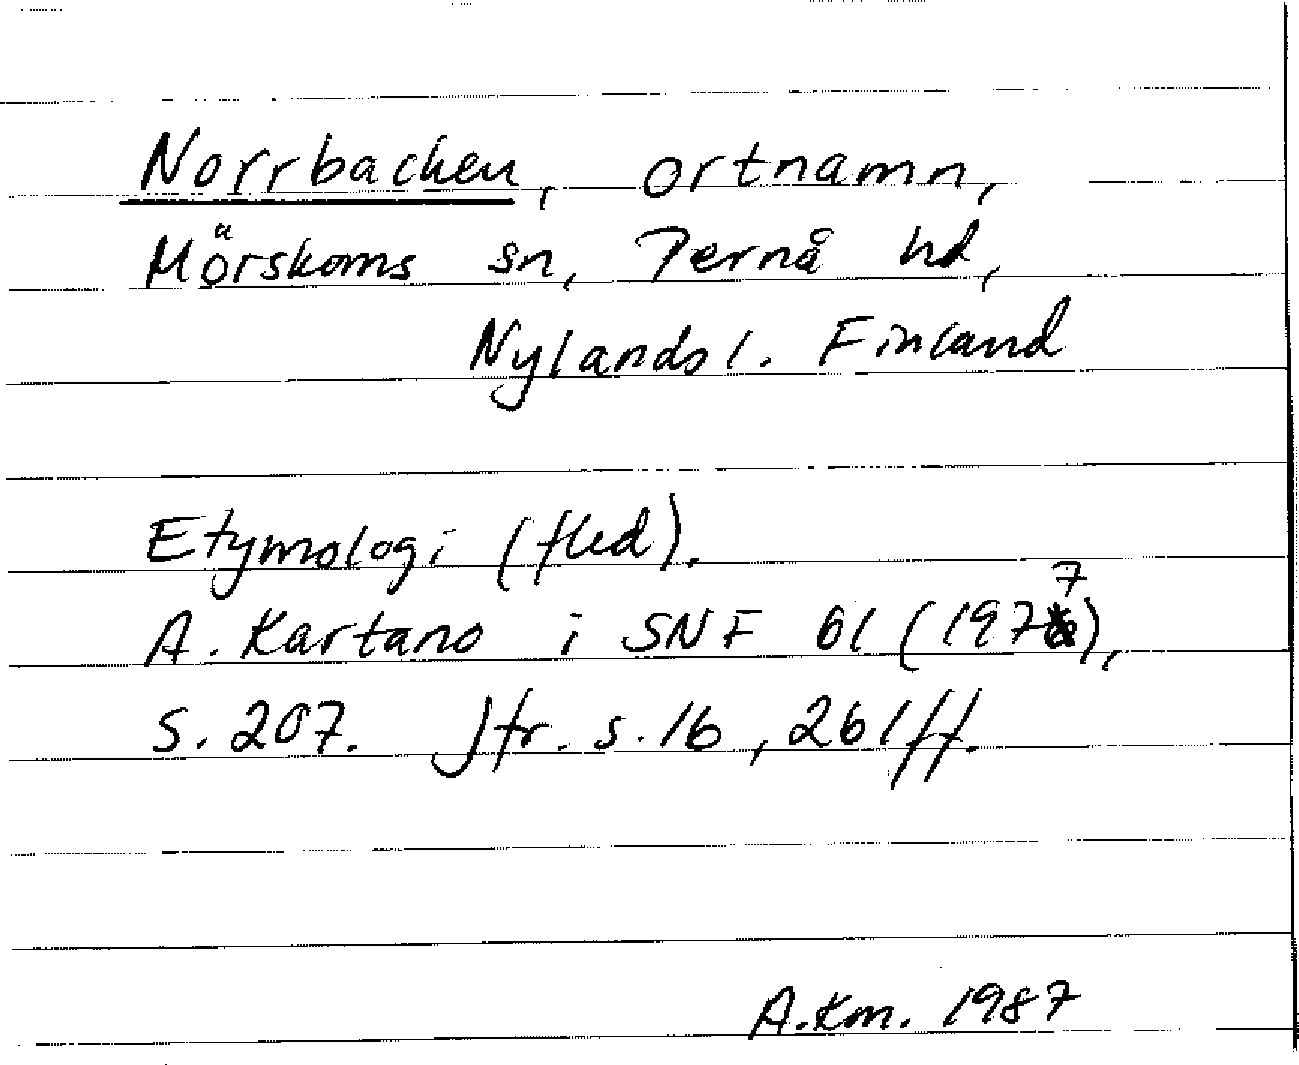 Norrbacken, ortnamn,
Mörskoms sn, Pernå hd,
Nylands l. Finland
Etymologi (fled).
A. Kartano i SNF 61 (1977),
S. 207. Jfr. s. 16, 261 ff.
A.Km. 1987